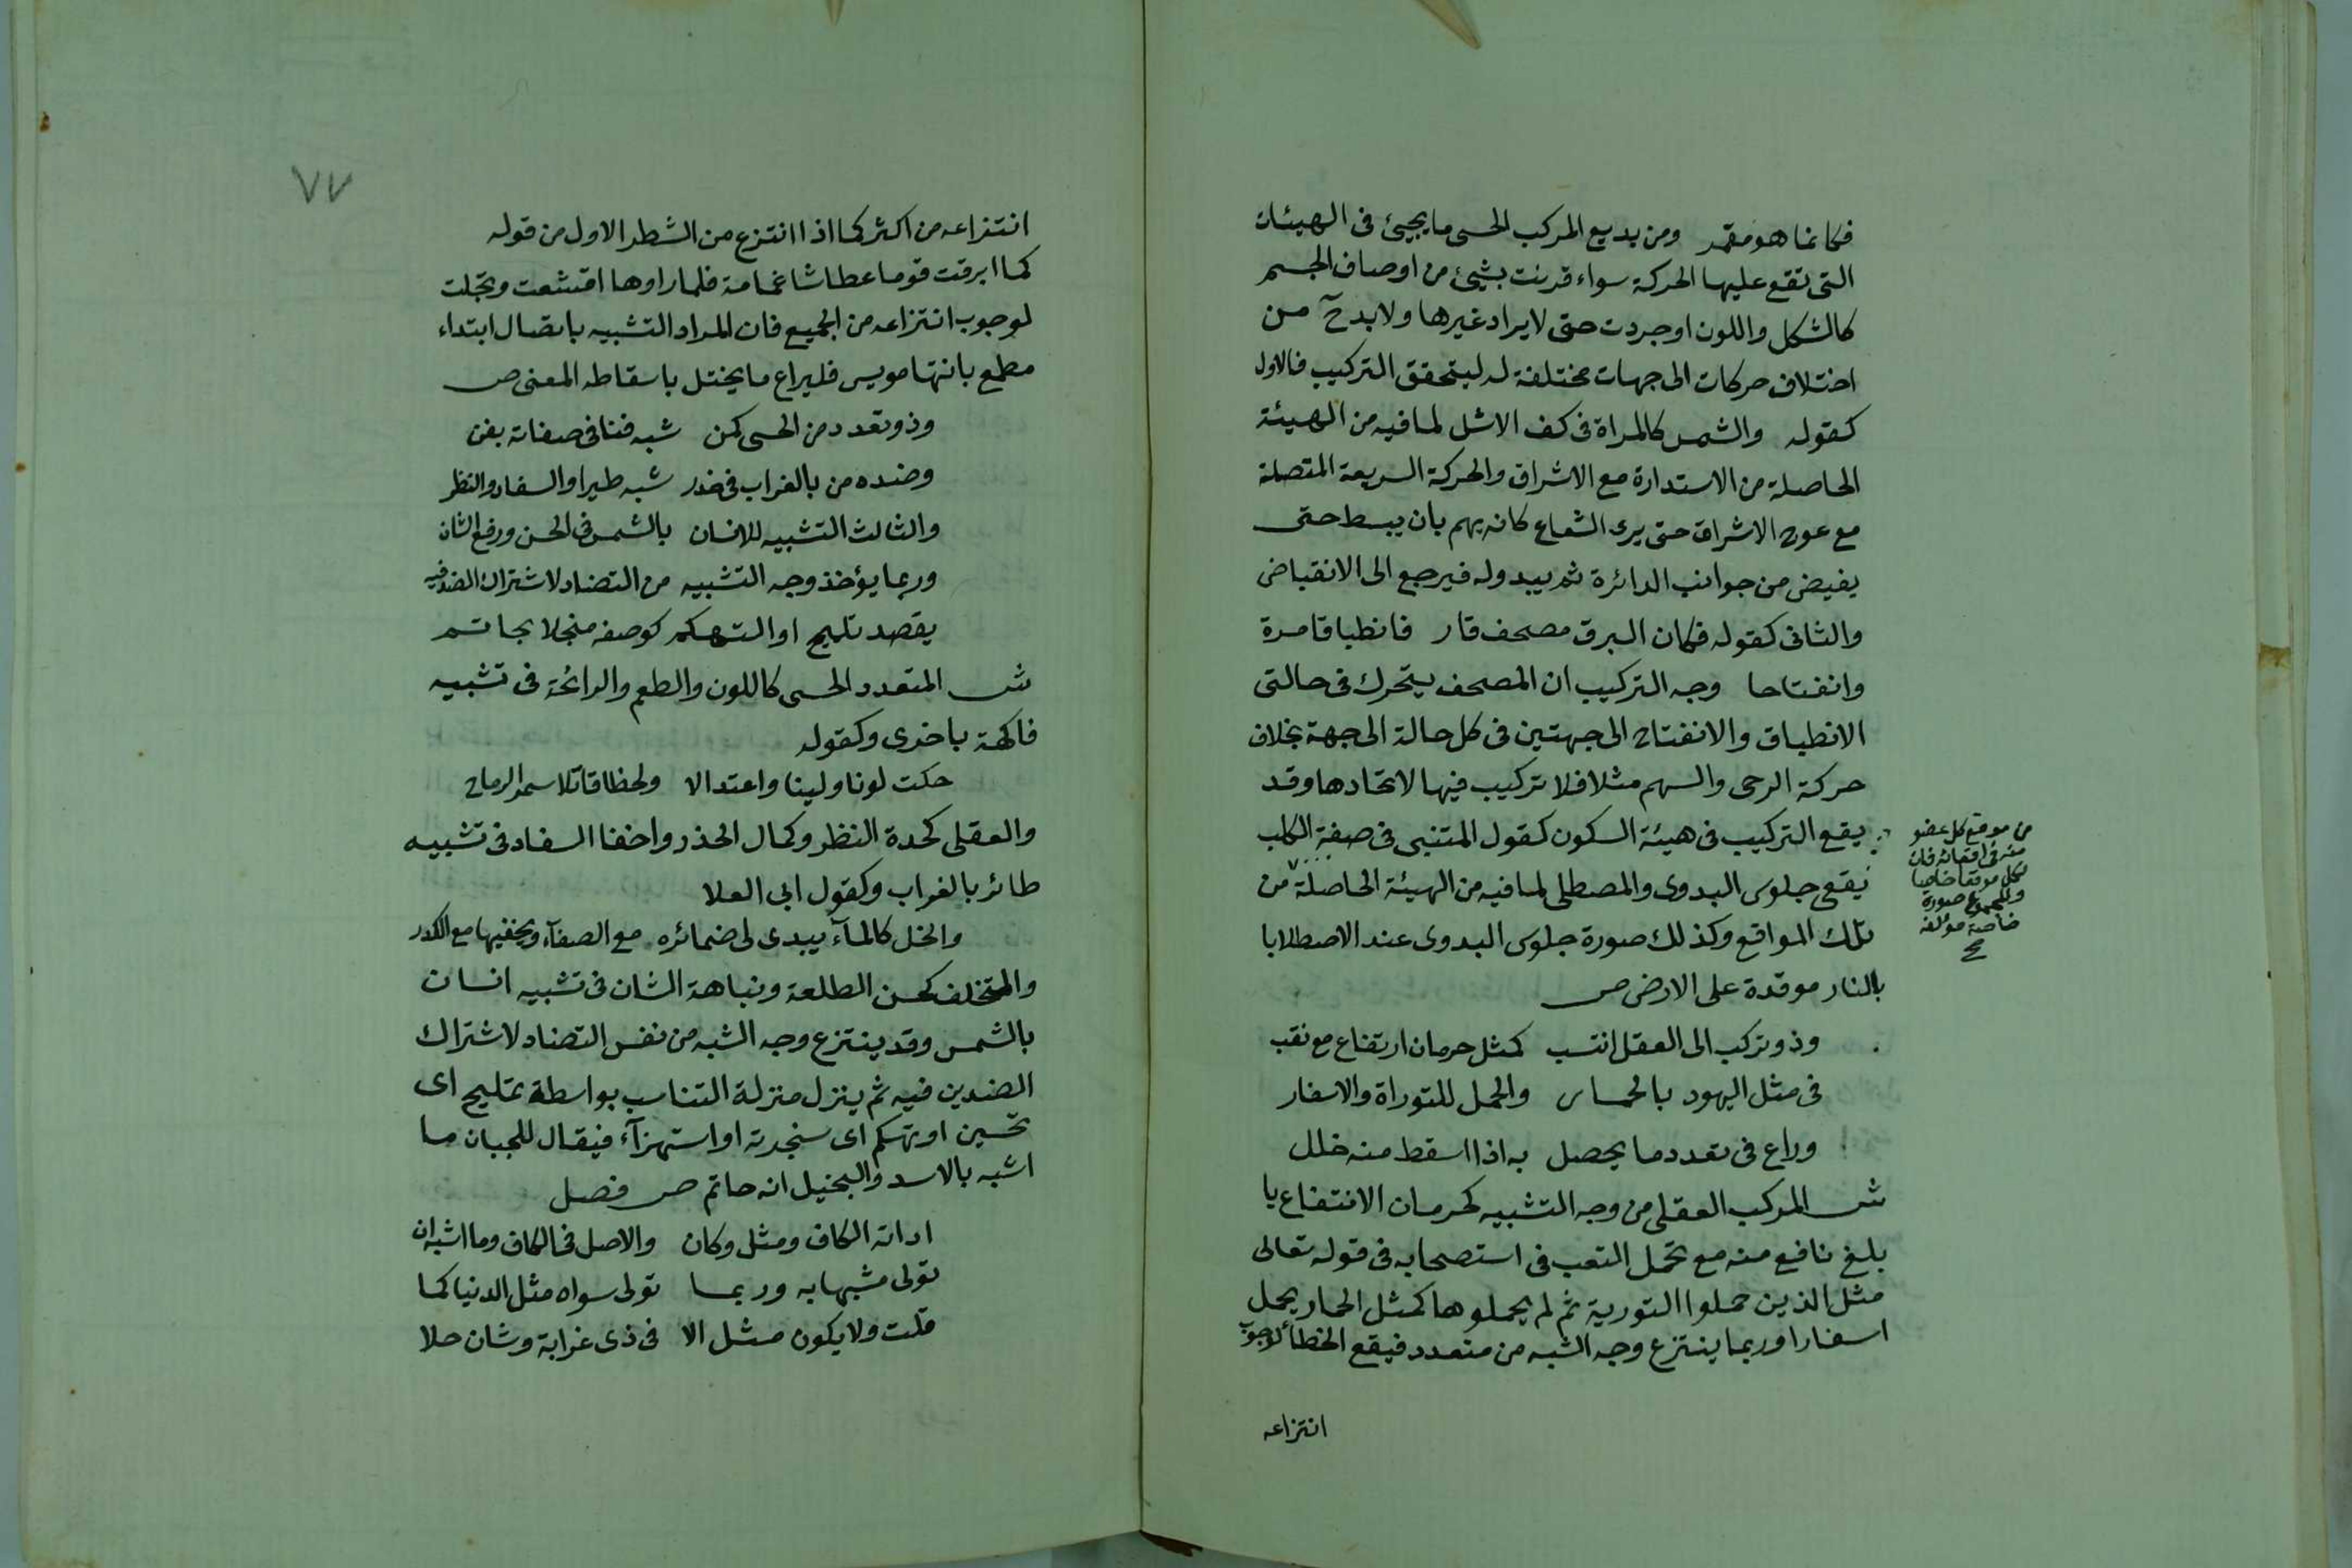 فكانما هو مقمر ومن بديع المركب الحسى ما يجيئ فى الهيئات
التى تقع عليها الحركة سواء قرنت بشيئ من اوصاف الجسم
كالشكل واللون او جردت حتى لا يراد غيرها ولا بد ح من
اختلاف حركات الى جهات مختلفة له ليتحقق التركيب فالاول
كقوله والشمس كالمراة فى كف الاشل لما فيه من الهيئة
الحاصلة من الاستدارة مع الاشراق والحركة السريعة المتصلة
مع عوج الاشراق حتى يرى الشعاع كانه يهم بان يبسط حتى
يفيض من جوانب الدائرة ثم يبدو له فيرجع الى الانقباض
والثانى كقوله فكان البرق مصحف قار فانطباقا مرة
وانفتاحا وجه التركيب ان المصحف يتحرك فى حالتى
الانطباق والانفتاح الى جهتين فى كل حالة الى جهة بخلاف
حركة الرحى والسهم مثلا فلا تركيب فيها لاتحادها وقد
يقع التركيب فى هيئة السكون كقول المتنبى فى صفة الكلب
يقع جلوس البدوى والمصطلى لما فيه من الهيئة الحاصلة من
تلك المواقع وكذلك صورة جلوس البدوى عند الاصطلا با
بالنار موقدة على الارض ص
وذو تركب الى العقل انتسب كمثل حرمان ارتفاع مع نقب
فى مثل اليهود بالحمار والحمل للتوراة والاسفار
وراع فى تعدد ما يحصل به اذا اسقط منه خلل
ش المركب العقلى من وجه التشبيه كحرمان الانتفاع با
بلغ نافع منه مع تحمل التعب فى استصحابه فى قوله تعالى
مثل الذين حملوا التورية ثم لم يحملوها كمثل الحمار يحمل
اسفارا وربما ينتزع وجه الشبه من متعدد فيقع الخطأ لوجوب
انتزاعه
من موقع كل عضو
منه فى اقعائه فان
لكل موقعا خاصا
وللمجموع صورة
خاصة مؤلفة
صح
٧٧
انتزاعه من اكثر كما اذا انتزع من الشطر الاول من قوله
كما ابرقت قوما عطاشا غمامة فلما راوها اقشعت وتجلت
لوجوب انتزاعه من الجميع فان المراد التشبيه باتصال ابتداء
مطمع بانتها مويس فليراع ما يختل باسقاطه المعنى ص
وذو تعدد من الحسى كمن شبه فنا فى صفاته بفن
وضده من بالغراب فى حذر شبه طيرا والسفاد والنظر
والثالث التشبيه للانسان بالشمس فى الحسن ورفع الشان
وربما يؤخذ وجه التشبيه من التضاد لاشتراك الضد فيه
يقصد تلميح او التهكم كوصفه منجلا بحاتم
ش المتعدد الحسى كاللون والطعم والرائحة فى تشبيه
فاكهة باخرى وكقوله
حكت لونا ولينا واعتدالا ولحظا قاتلا سمر الرماح
والعقلى كحدة النظر وكمال الحذر واخفا السفاد فى تشبيه
طائر بالغراب وكقول ابى العلا
والخل كالمآء يبدى لى ضمائره مع الصفآء ويخفيها مع الكدر
والمختلف كحسن الطلعة ونباهة الشان فى تشبيه انسان
بالشمس وقد ينتزع وجه الشبه من نفس التضاد لاشتراك
الضدين فيه ثم ينزل منزلة التناسب بواسطة تمليح اى
تحسين او تهكم اى سخرية او استهزآء فيقال للجبان ما
اشبه بالاسد والبخيل انه حاتم ص فصل
اداته الكاف ومثل وكان والاصل فى الكاف وما اشبه ان
تولى مشبها به وربما تولى سواه مثل الدنيا كما
قلت ولا يكون مثل الا فى ذى غرابة وشان حلا